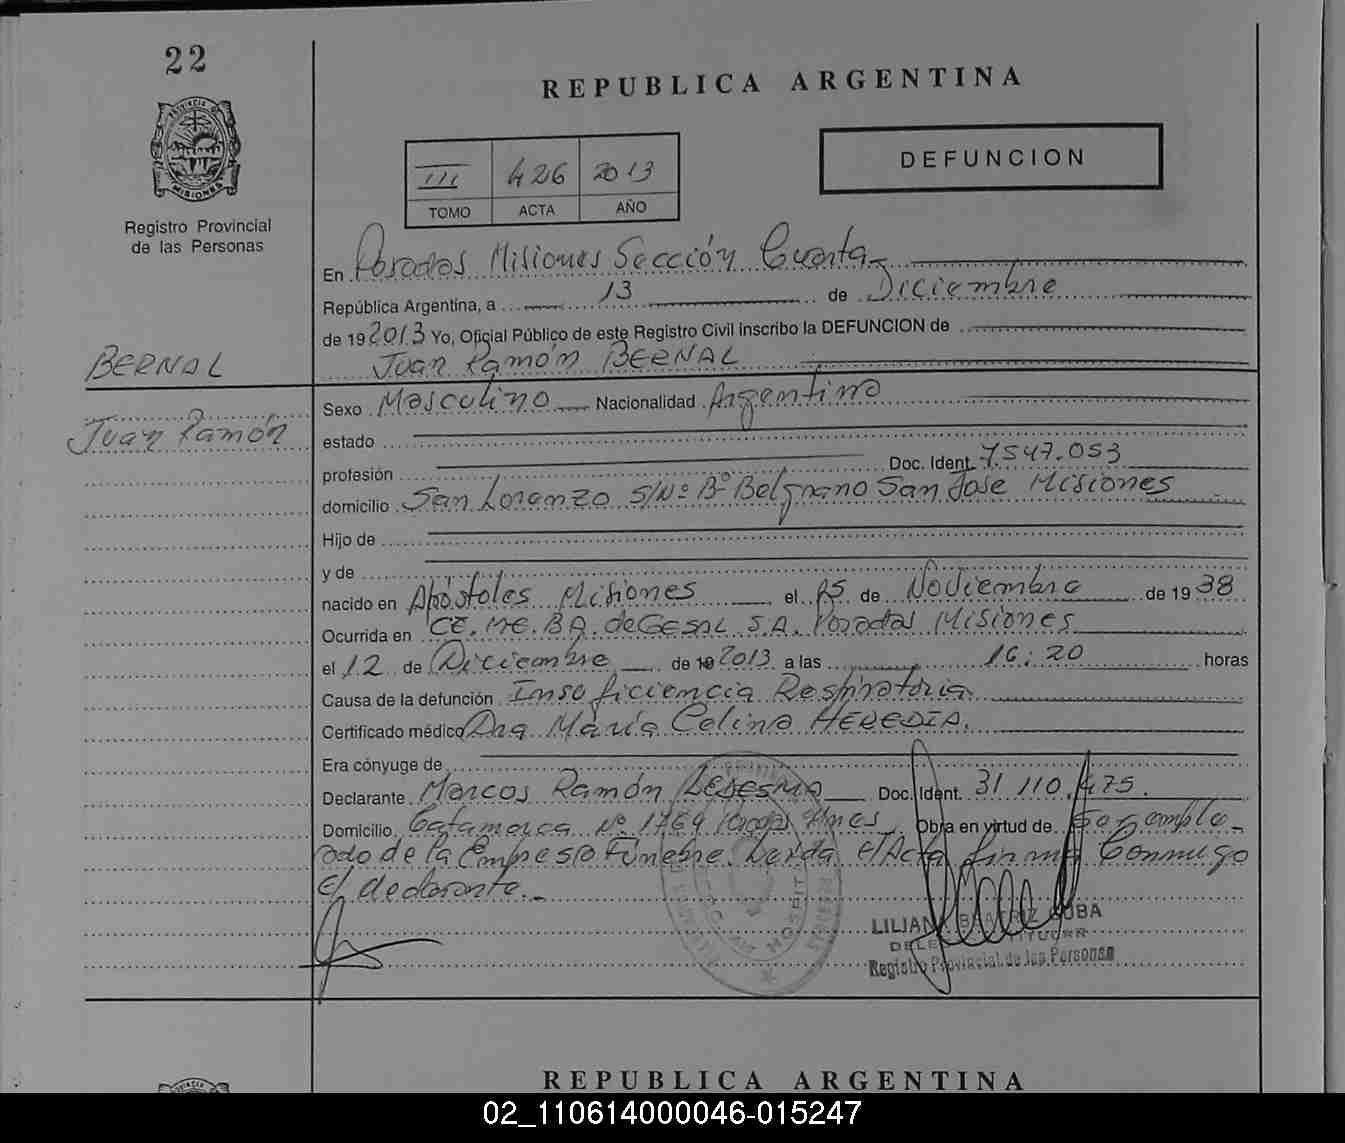 22
REPUBLICA ARGENTINA
PROVINCIA DE
MISIONES
Registro Provincial
de las Personas
DEFUNCION
III 426 2013
TOMO ACTA AÑO
En Posadas Misiones Sección Cuarta
República Argentina, a 13 de Diciembre
de 192013 Yo, Oficial Público de este Registro Civil inscribo la DEFUNCION de
Juan Ramón BERNAL
BERNAL
Juan Ramón
Sexo Masculino Nacionalidad Argentina
estado
profesión Doc. Ident. 7547.053
domicilio San Lorenzo S/Nº Bº Belgrano San Jose Misiones
Hijo de
y de
nacido en Apóstoles Misiones el 25 de Noviembre de 1938
Ocurrida en CE.ME.BA. de GESAL S.A. Posadas Misiones
el 12 de Diciembre de 192013 a las 16:20 horas
Causa de la defunción Insuficiencia Respiratoria
Certificado médico Dra María Celina HEREDIA.
Era cónyuge de
Declarante Marcos Ramón LEDESMA Doc. Ident. 31 110.475.
Domicilio Catamarca Nº 1769 Mnes Obra en virtud de Ser emplea-
ado de la Empresa Fúnebre. Leída el Acta firma Conmigo
el declarante.-
LILIANA BEATRIZ CUBA
DELEGADA TITULAR
Registro Provincial de las Personas
REPUBLICA ARGENTINA
02_110614000046-015247